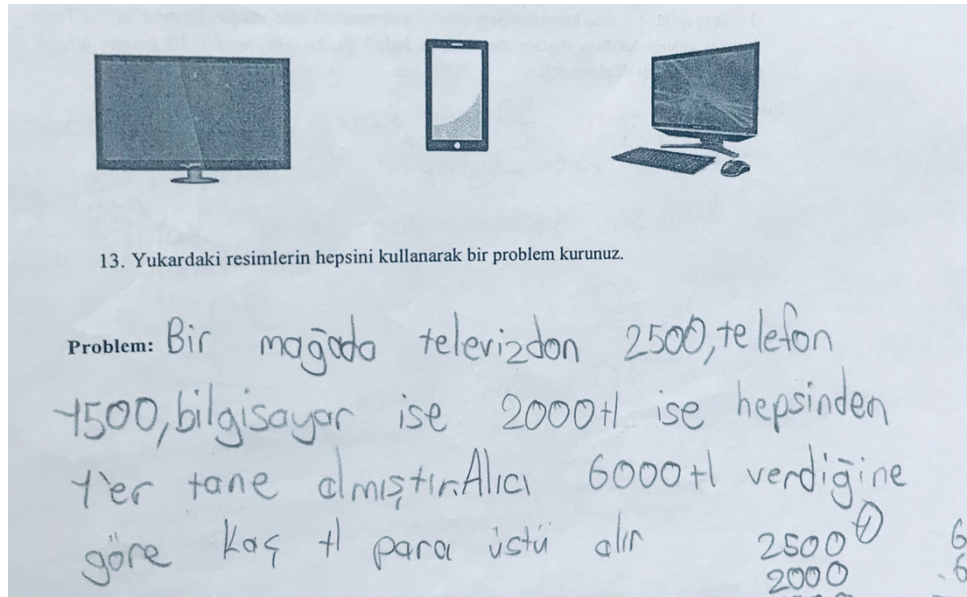 13. Yukardaki resimlerin hepsini kullanarak bir problem kurunuz.
Problem: Bir mağada televizdon 2500, telefon
1500, bilgisayar ise 2000 tl ise hepsinden
1'er tane almıştır. Alıcı 6000 tl verdiğine
göre kaç tl para üstü alır
2500 6
2000 6